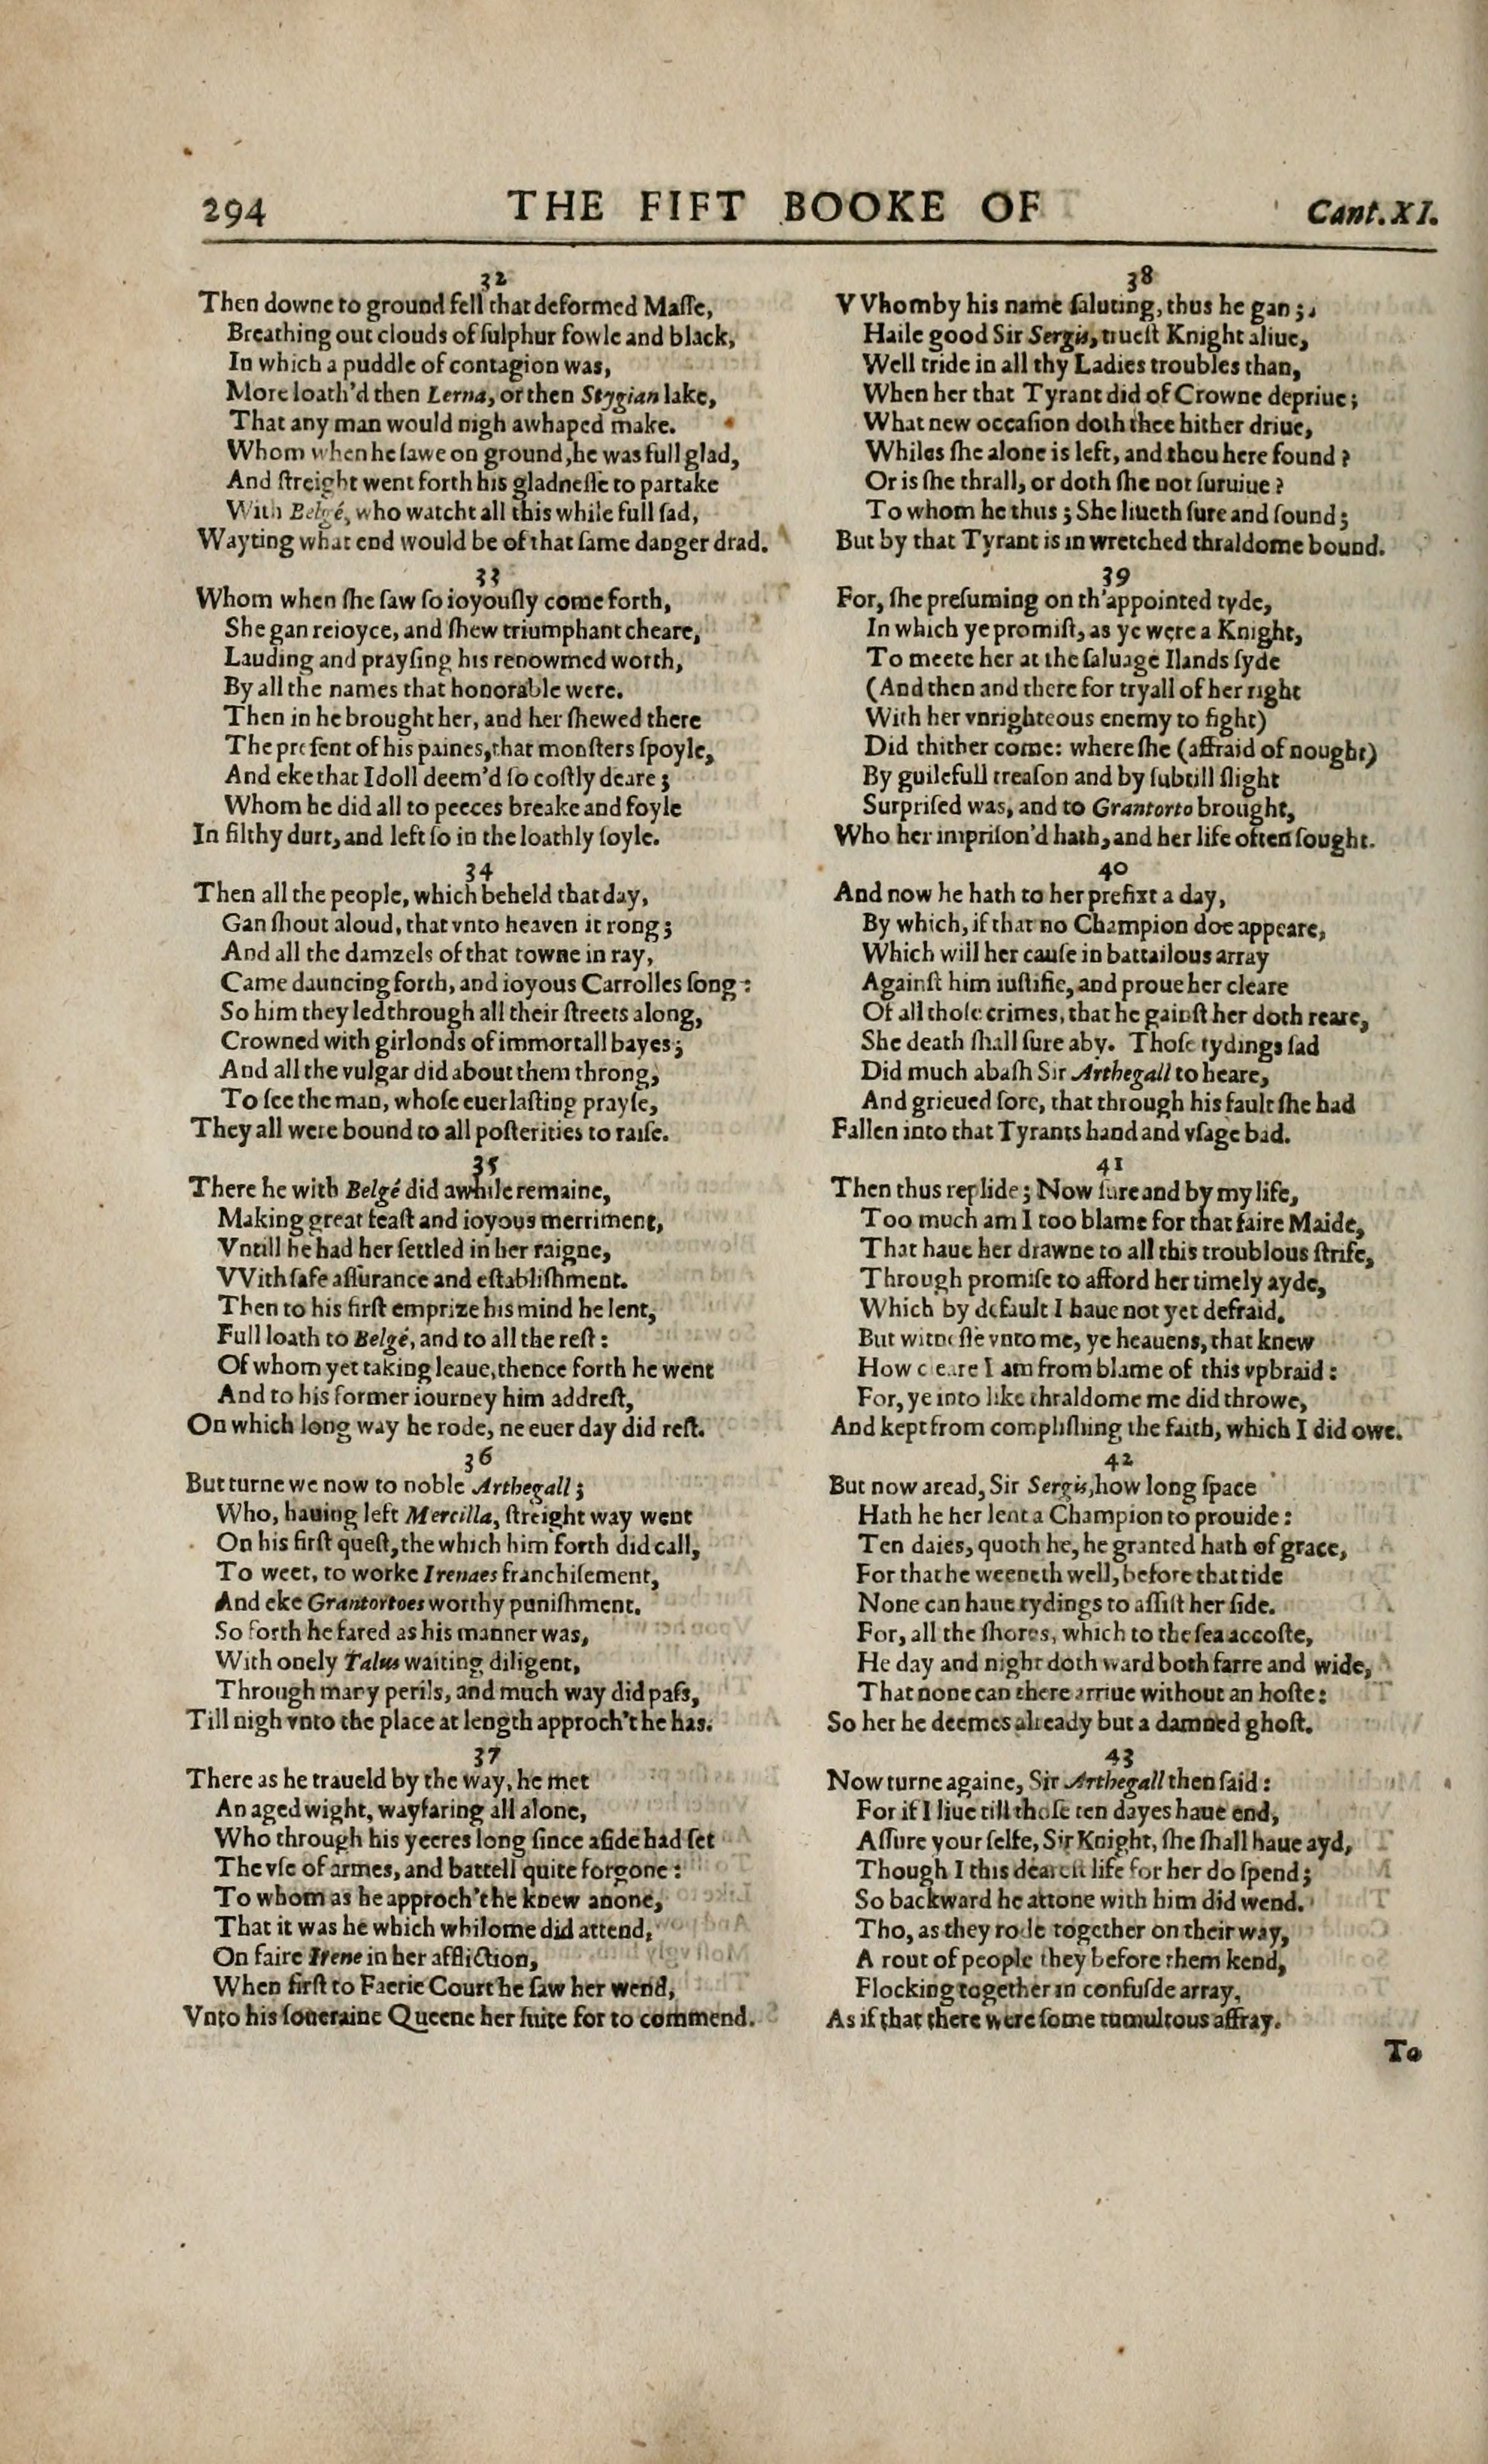 294 THE FIFT BOOKE OF Cant. XI.
32
Then downe to ground fell that deformed Maſſe,
Breathing out clouds of ſulphur fowle and black,
In which a puddle of contagion was,
More loath'd then Lerna, or then Stygian lake,
That any man would nigh awhaped make.
Whom when he ſawe on ground, he was full glad,
And ſtreight went forth his gladneſſe to partake
With Belgé, who watcht all this while full ſad,
Wayting what end would be of that ſame danger drad.
33
Whom when ſhe ſaw ſo ioyouſly come forth,
She gan reioyce, and ſhew triumphant cheare,
Lauding and prayſing his renowmed worth,
By all the names that honorable were.
Then in he brought her, and her ſhewed there
The preſent of his paines, that monſters ſpoyle,
And eke that Idoll deem'd ſo coſtly deare;
Whom he did all to peeces breake and foyle
In filthy durt, and left ſo in the loathly ſoyle.
34
Then all the people, which beheld that day,
Gan ſhout aloud, that vnto heaven it rong;
And all the damzels of that towne in ray,
Came dauncing forth, and ioyous Carrolles ſong:
So him they led through all their ſtreets along,
Crowned with girlonds of immortall bayes;
And all the vulgar did about them throng,
To ſee the man, whoſe euerlaſting prayſe,
They all were bound to all poſterities to raiſe.
35
There he with Belgé did awhile remaine,
Making great feaſt and ioyous merriment,
Vntill he had her ſettled in her raigne,
VVith ſafe aſſurance and eſtabliſhment.
Then to his firſt emprize his mind he lent,
Full loath to Belgé, and to all the reſt:
Of whom yet taking leaue, thence forth he went
And to his former iourney him addreſt,
On which long way he rode, ne euer day did reſt.
36
But turne we now to noble Arthegall;
Who, hauing left Mercilla, ſtreight way went
On his firſt queſt, the which him forth did call,
To weet, to worke Irenaes franchiſement,
And eke Grantortoes worthy puniſhment.
So forth he fared as his manner was,
With onely Talus waiting diligent,
Through many perils, and much way did paſs,
Till nigh vnto the place at length approch't he has.
37
There as he traueld by the way, he met
An aged wight, wayfaring all alone,
Who through his yeeres long ſince aſide had ſet
The vſe of armes, and battell quite forgone:
To whom as he approch't he knew anone,
That it was he which whilome did attend,
On faire Irene in her affliction,
When firſt to Faerie Court he ſaw her wend,
Vnto his ſoueraine Queene her ſuite for to commend.
38
VVhom by his name ſaluting, thus he gan;
Haile good Sir Sergis, trueſt Knight aliue,
Well tride in all thy Ladies troubles than,
When her that Tyrant did of Crowne depriue;
What new occaſion doth thee hither driue,
Whiles ſhe alone is left, and thou here found?
Or is ſhe thrall, or doth ſhe not ſuruiue?
To whom he thus; She liueth ſure and ſound;
But by that Tyrant is in wretched thraldome bound.
39
For, ſhe preſuming on th'appointed tyde,
In which ye promiſt, as ye were a Knight,
To meete her at the ſaluage Ilands ſyde
(And then and there for tryall of her right
With her vnrighteous enemy to fight)
Did thither come: where ſhe (affraid of nought)
By guilefull treaſon and by ſubtill ſlight
Surpriſed was, and to Grantorto brought,
Who her impriſon'd hath, and her life often ſought.
40
And now he hath to her prefixt a day,
By which, if that no Champion doe appeare,
Which will her cauſe in battailous array
Againſt him iuſtifie, and proue her cleare
Of all thoſe crimes, that he gainſt her doth reare,
She death ſhall ſure aby. Thoſe tydings ſad
Did much abaſh Sir Arthegall to heare,
And grieued ſore, that through his fault ſhe had
Fallen into that Tyrants hand and vſage bad.
41
Then thus replide; Now ſure and by my life,
Too much am I too blame for that faire Maide,
That haue her drawne to all this troublous ſtrife,
Through promiſe to afford her timely ayde,
Which by default I haue not yet defraid.
But witneſſe vnto me, ye heauens, that knew
How cleare I am from blame of this vpbraid:
For, ye into like thraldome me did throwe,
And kept from compliſhing the faith, which I did owe.
42
But now aread, Sir Sergis, how long ſpace
Hath he her lent a Champion to prouide:
Ten daies, quoth he, he granted hath of grace,
For that he weeneth well, before that tide
None can haue tydings to aſſiſt her ſide.
For, all the ſhores, which to the ſea accoſte,
He day and night doth ward both farre and wide,
That none can there arriue without an hoſte:
So her he deemes already but a damned ghoſt.
43
Now turne againe, Sir Arthegall then ſaid:
For if I liue till thoſe ten dayes haue end,
Aſſure your ſelfe, Sir Knight, ſhe ſhall haue ayd,
Though I this deareſt life for her do ſpend;
So backward he attone with him did wend.
Tho, as they rode together on their way,
A rout of people they before them kend,
Flocking together in confuſde array,
As if that there were ſome tumultous affray.
To